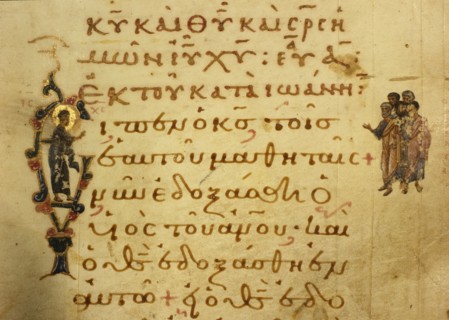 κ̅υ̅ καὶ θ̅υ̅ καὶ σ̅ρ̅ς̅ ἡ
μῶν ι̅υ̅ χ̅υ̅ : εὐα :
ἐκ τοῦ κατὰ ἰωάννη :
εἶπεν ὁ κ̅ς̅ τοῖς
ἑαυτοῦ μαθηταῖς +
νῦν ἐδοξάσθη ὁ
υἱὸς τοῦ α̅ν̅ο̅υ̅ · καὶ
ὁ θ̅ς̅ ἐδοξάσθη ἐν
αὐτῶ + εἰ ὁ θ̅ς̅ ἐδο